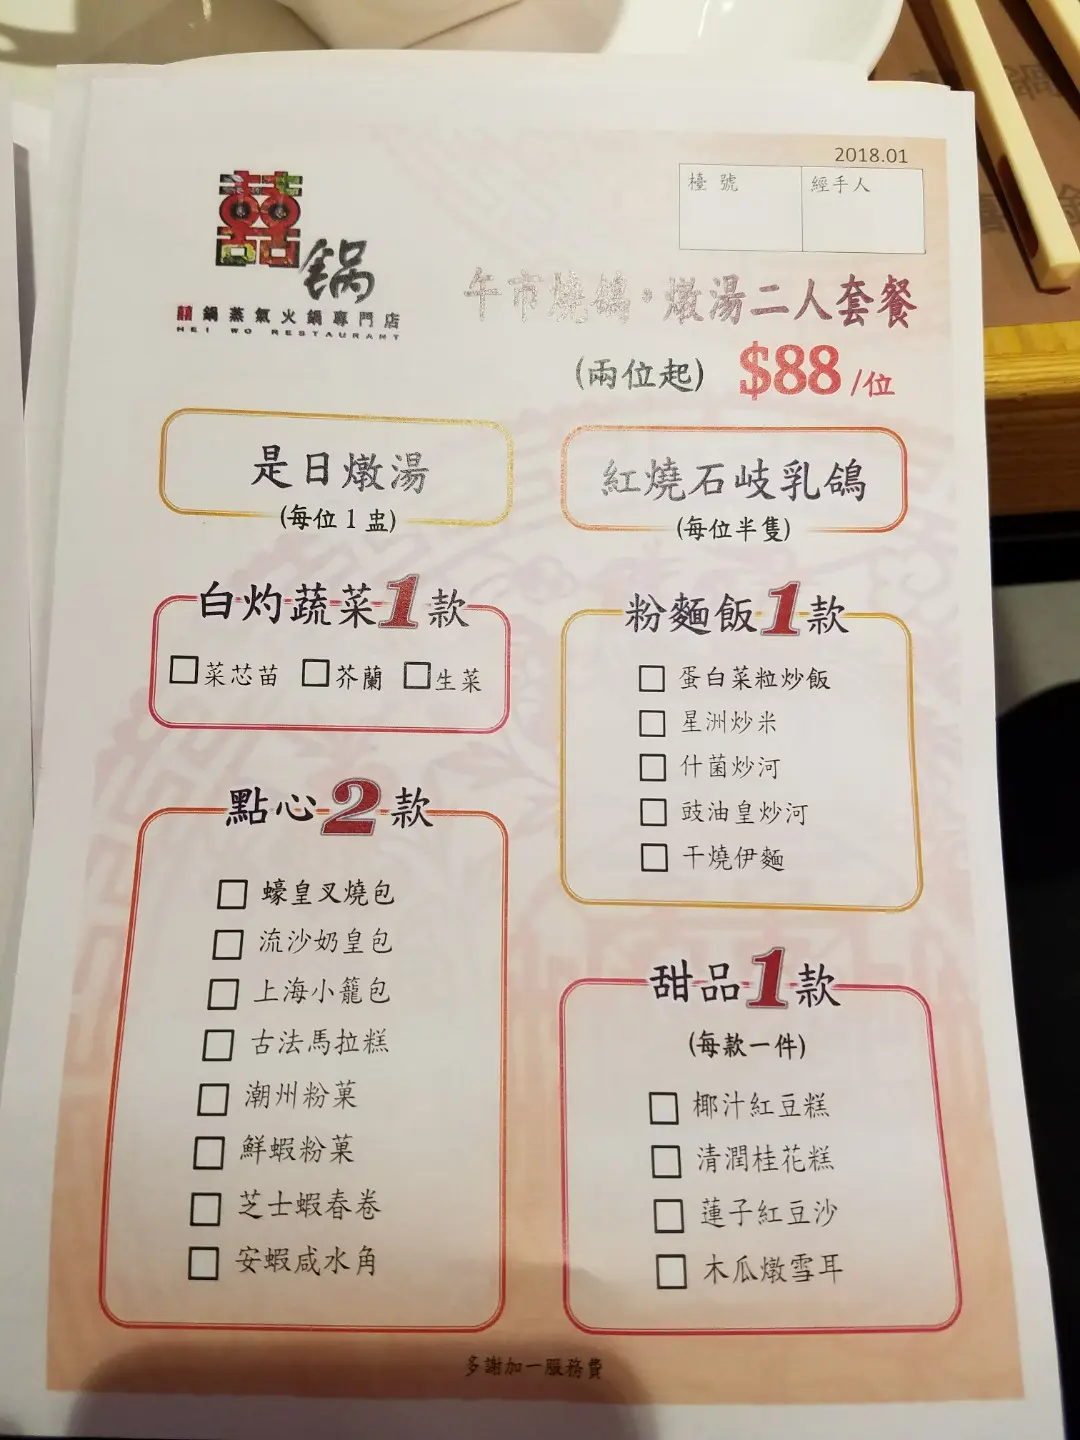 2018.01
檯號
經手人
囍锅
囍鍋蒸氣火鍋專門店
HEI WO RESTAURANT
午市燒鴿·燉湯二人套餐
(兩位起) $88/位
是日燉湯
(每位1盅)
紅燒石岐乳鴿
(每位半隻)
白灼蔬菜1款
菜芯苗 芥蘭 生菜
粉麵飯1款
蛋白菜粒炒飯
星洲炒米
什菌炒河
豉油皇炒河
干燒伊麵
點心2款
蠔皇叉燒包
流沙奶皇包
上海小籠包
古法馬拉糕
潮州粉菓
鮮蝦粉菓
芝士蝦春卷
安蝦咸水角
甜品1款
(每款一件)
椰汁紅豆糕
清潤桂花糕
蓮子紅豆沙
木瓜燉雪耳
多謝加一服務費